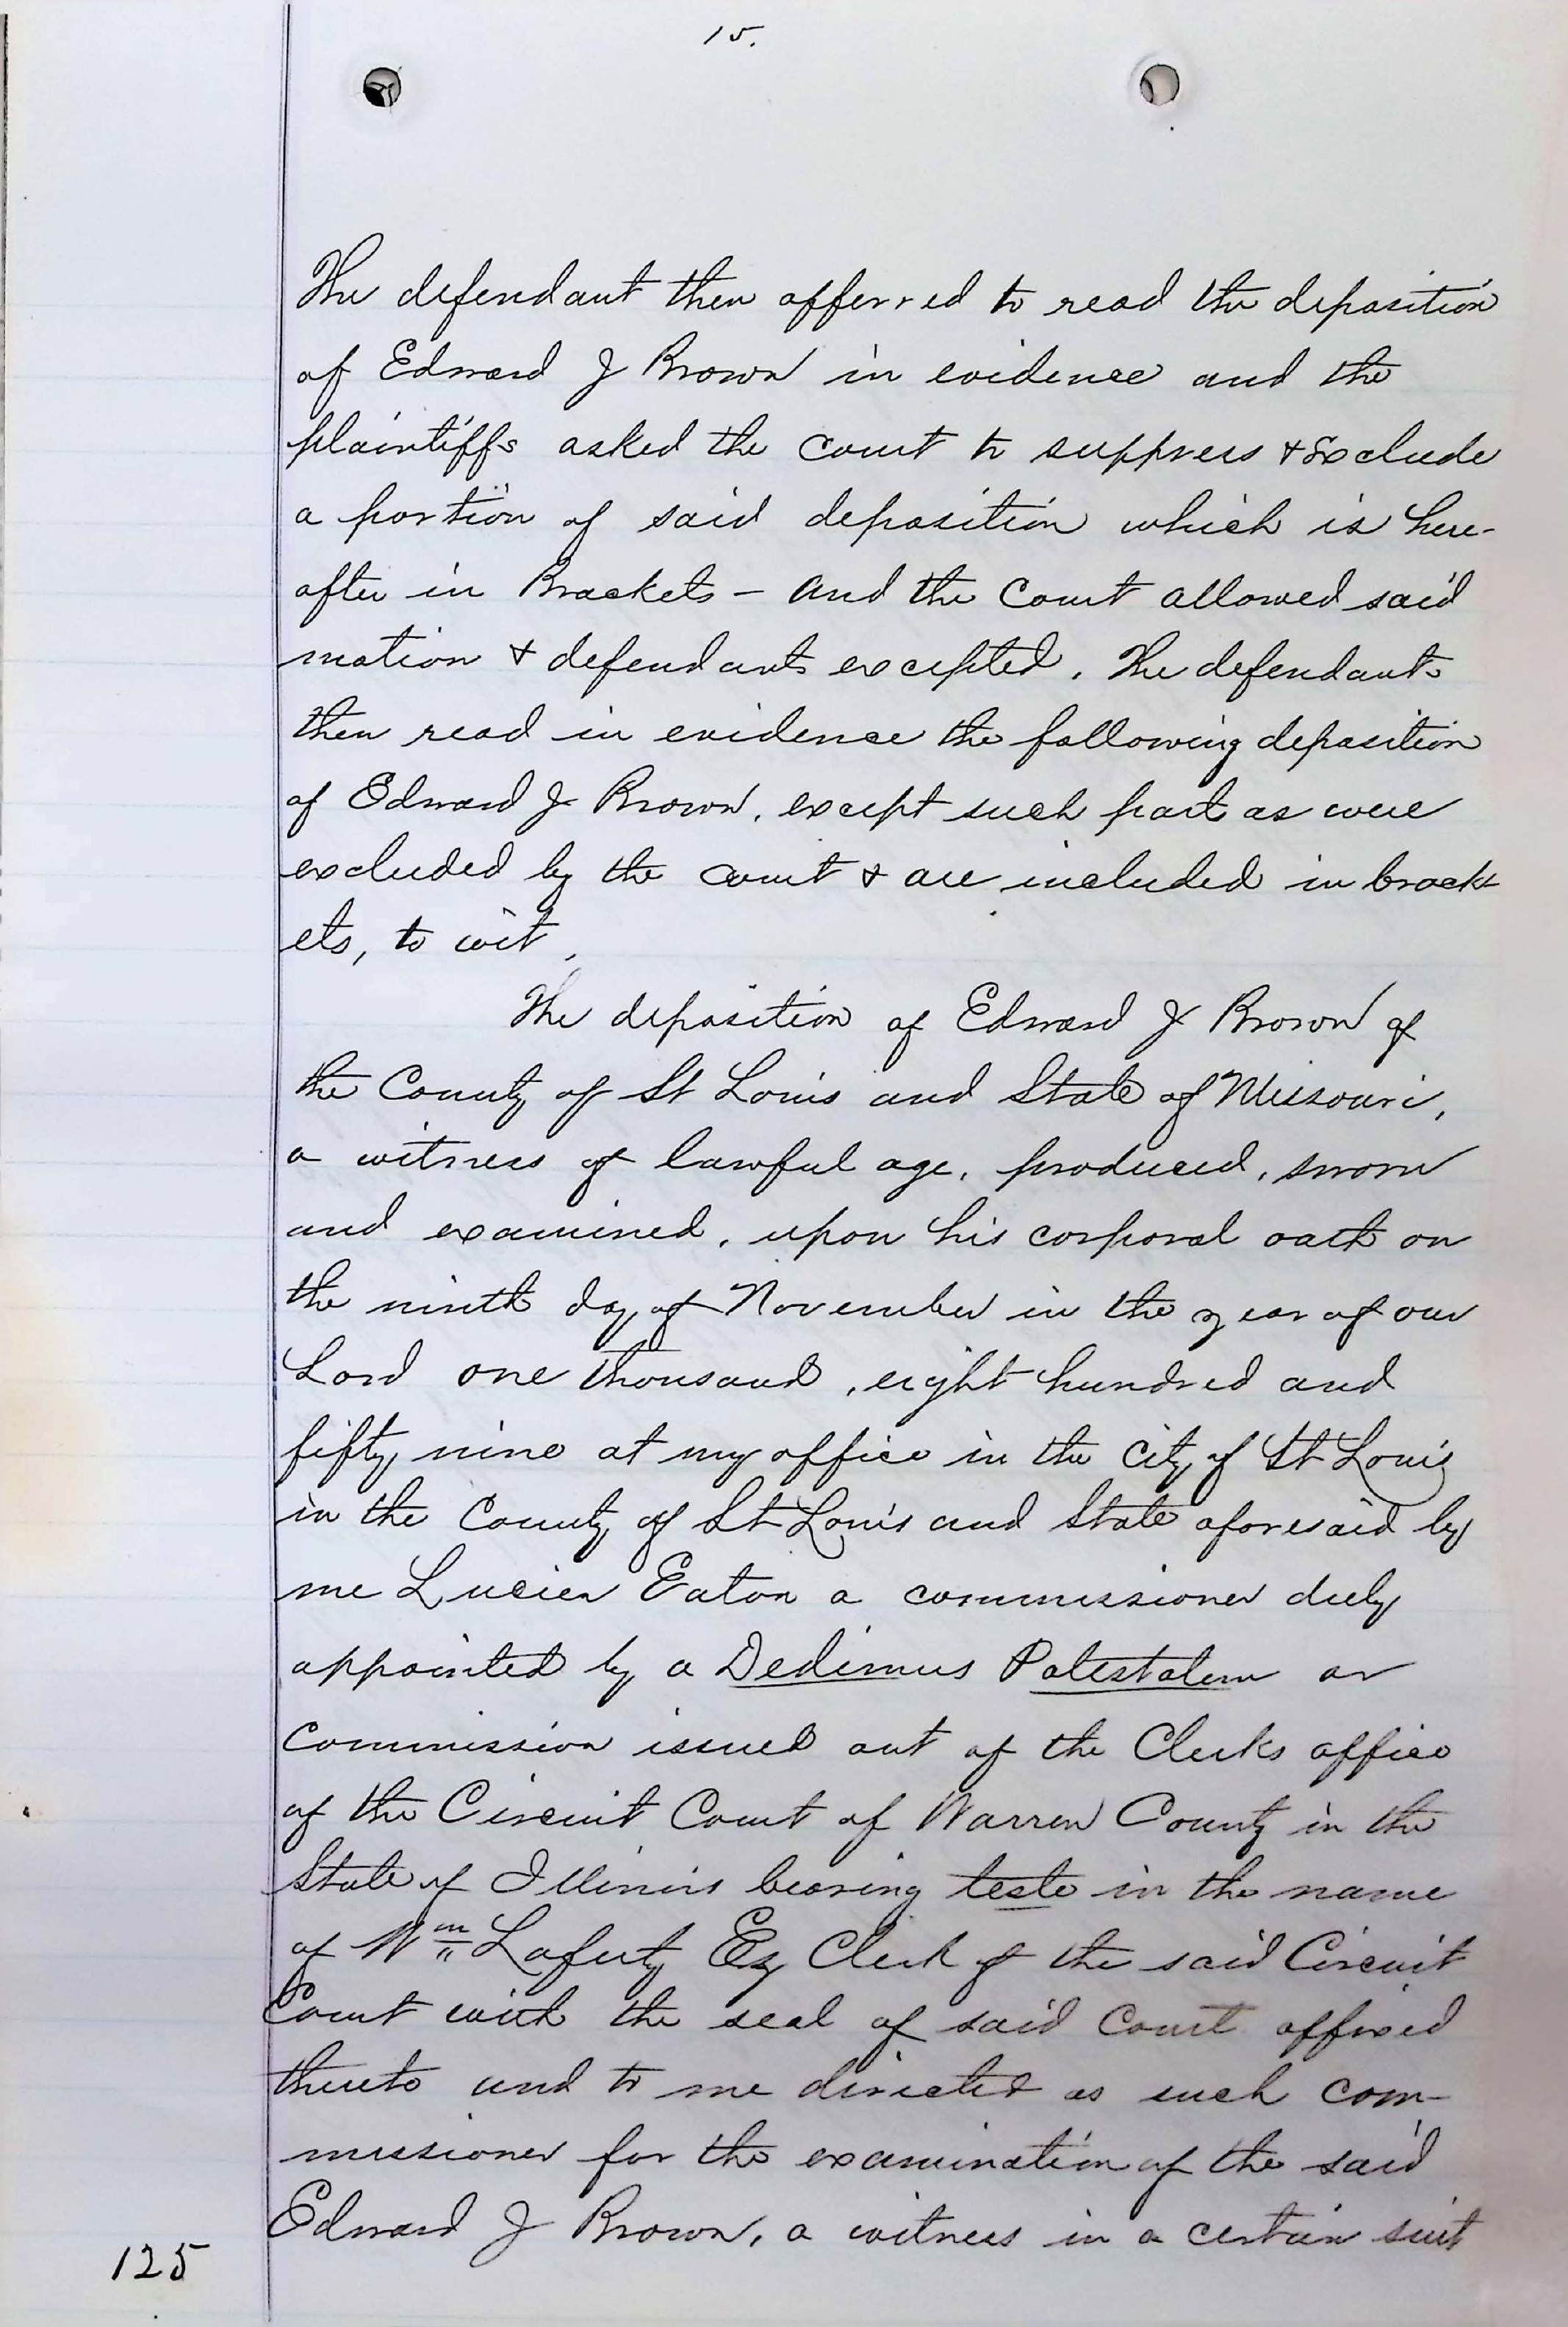 15.
The defendant then offerred to read the deposition
of Edward J Brown in evidence and the
plaintiffs asked the court to suppress & Exclude
a portion of said deposition which is here-
after in Brackets - and the Court allowed said
motion & defendants excepted. The defendants
then read in evidence the following deposition
of Edward J Brown, except such part as were
excluded by the court & are included in brack-
ets, to wit,
The deposition of Edward J Brown of
the County of St Louis and State of Missouri,
a witness of lawful age, produced, sworn
and examined, upon his corporal oath on
the ninth day of November in the year of our
Lord one thousand, eight hundred and
fifty nine at my office in the city of St Louis
in the County of St Louis and State aforesaid by
me Lucien Eaton a commissioner duly
appointed by a Dedimus Potestatem or
Commission issued out of the Clerks office
of the Circuit Court of Warren County in the
State of Illinois bearing teste in the name
of Wm Laferty Esq Clerk of the said Circuit
Court with the seal of said Court affixed
thereto and to me directed as such com-
missioner for the examination of the said
Edward J Brown, a witness in a certain suit
125